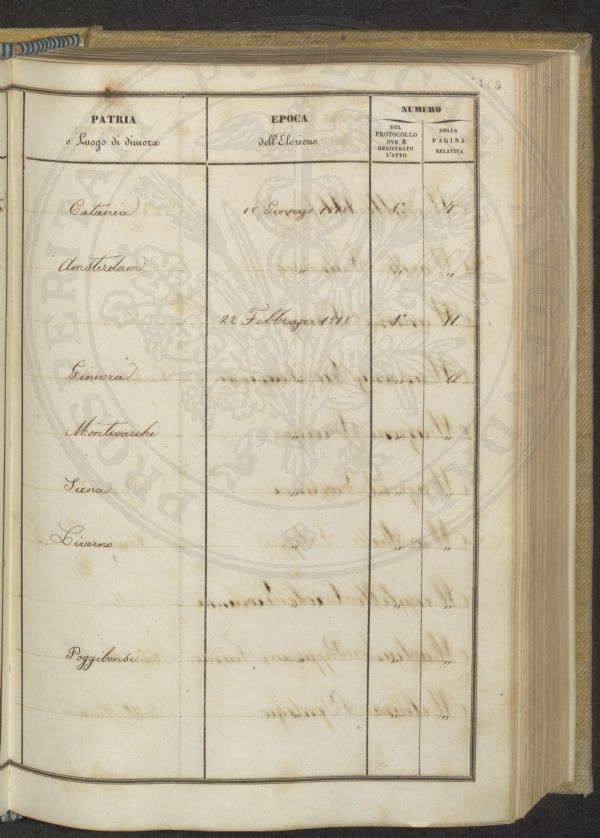 165
PATRIA
o Luogo di dimora
EPOCA
dell'Elezione
NUMERO
DEL
PROTOCOLLO
OVE È
REGISTRATO
L'ATTO
DELLA
PAGINA
RELATIVA
Catania Gennajo 1°
Amsterdam " " "
22 Febbrajo 1818 1° 11
Ginevra " 12
Montevarchi " " "
Siena " " "
Livorno " " "
" " "
Poggibonsi " " "